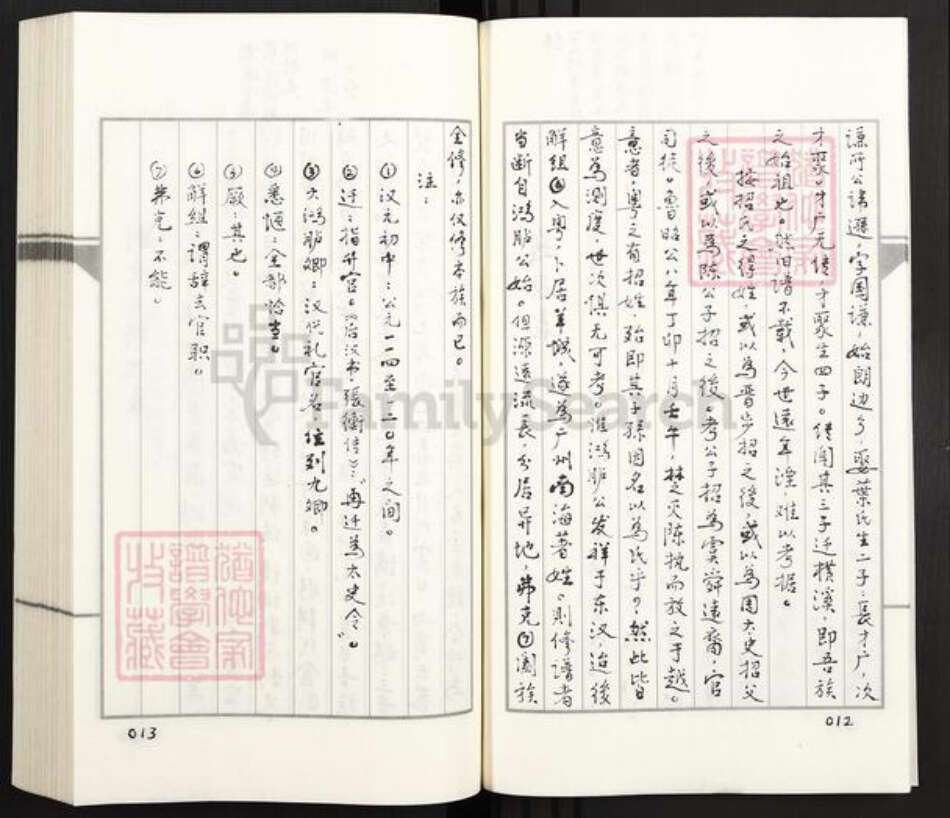 谦所公讳遜，字国谦，始朗边乡，娶葉氏生二子：長才户，次
才聚。才户无传，才聚生四子。传闻其三子迁横溪，即吾族
之始祖也。然旧谱不载，今世遠年淫，难以考据。
按招氏之得姓，或以為晋步招之後，或以為周大史招父
之後，或以為陈公子招之後。考公子招為虞舜遠裔，官
司徒。鲁昭公八年丁卯十月壬午，楚灭陈，执而放之于越。
意者，粤之有招姓，殆即其子孫因名以為氏乎？然此皆
意為測度，世次俱无可考。惟鴻胪公发祥于东汉，迨後
解组⑥入粤，卜居羊城，遂為广州南海著姓。則修谱者
当断自鴻胪公始。但源遠流長，分居异地，弗克⑦阖族
012
全修，亦仅修本族而已。
注：
①汉元初中：公元一一四至一二0年之间。
②迁：指升官。《后汉书·張衡传》：“再迁為太史令”。
③大鴻胪卿：汉代礼官名，位列九卿。
④悉惬：全部恰当。
⑤厥：其也。
⑥解组：谓辞去官职。
⑦弗克：不能。
013
FamilySearch